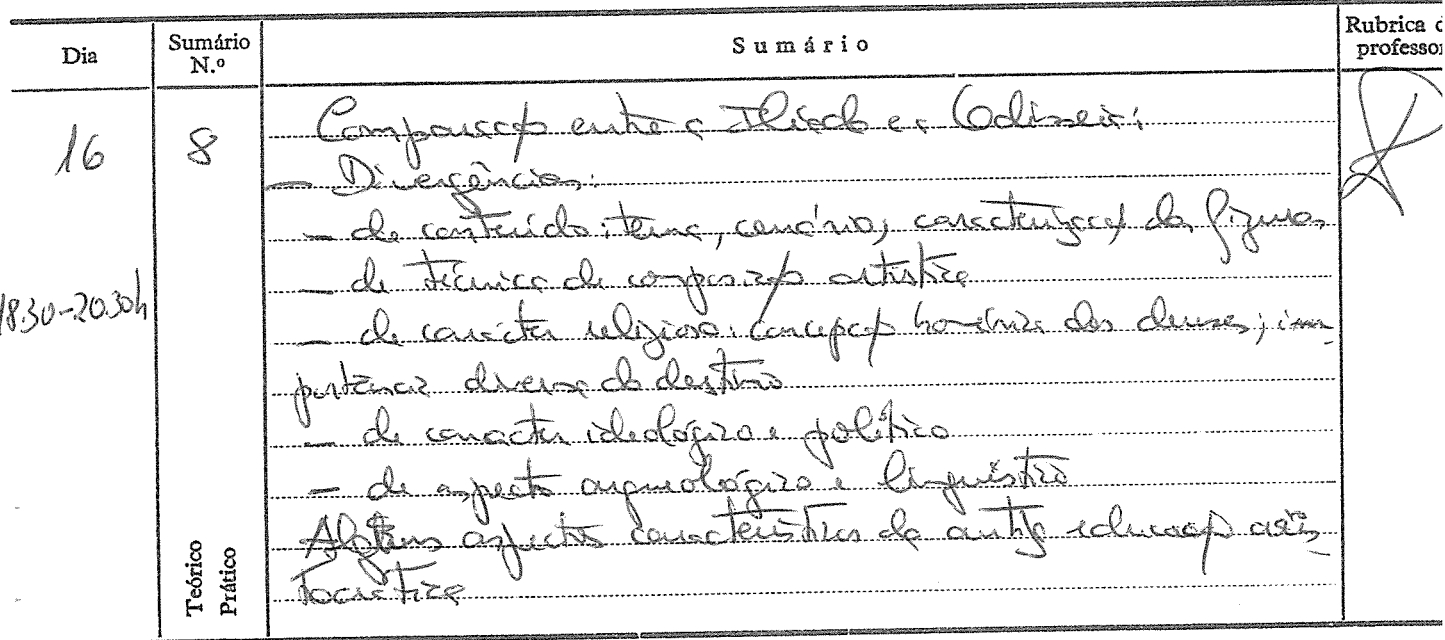 Dia
Sumário
N.º
Sumário
Rubrica d
professor
16
8
18.30-20.30h
Comparação entre a Ilíada e a Odisseia:
- Divergências:
- de conteúdo: tema, cenário, caracterização das figuras
- de técnica de composição artística
- de carácter religioso: concepção homérica dos deuses; im-
portância diversa do destino
- de carácter ideológico e político
- de aspecto arqueológico e linguístico
Alguns aspectos característicos da antiga educação aris-
tocrática
Teórico
Prático